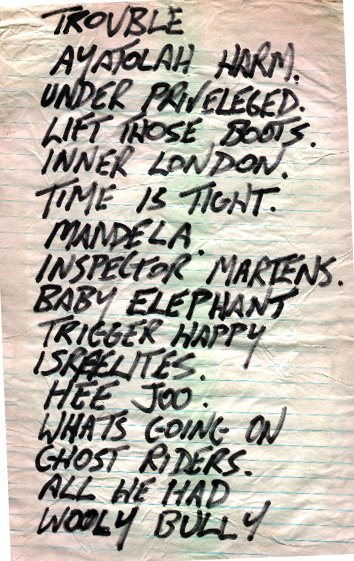 TROUBLE
AYATOLAH HARM.
UNDER PRIVELEGED.
LIFT THOSE BOOTS.
INNER LONDON.
TIME IS TIGHT.
MANDELA.
INSPECTOR MARTENS.
BABY ELEPHANT
TRIGGER HAPPY
ISRAELITES.
HEE JOO.
WHATS GOING ON
GHOST RIDERS.
ALL WE HAD
WOOLY BULLY